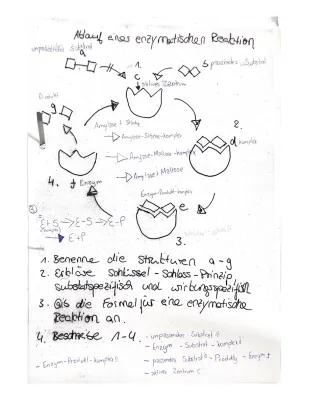 Ablauf eines enzymatischen Reaktion
unpassendes Substrat
a
1.
b passendes Substrat
c
aktives Zentrum
Produkt
g
2.
Amylase + Stärke
Amylase-Stärke-komplex
d komplex
Amylase-Maltose-komplex
Amylase + Maltose
4. f Enzym
Enzym-Produkt-komplex
e
③
E+S → E-S → E-P
E+P
3.
1. Benenne die strukturen a-g
2. Erkläre Schlüssel-Schloss-Prinzip,
substratspezifisch und wirkungsspezifisch
3. Gib die Formel für eine enzymatische
Reaktion an.
4. Beschreibe 1-4.
- unpassendes Substrat a
- Enzym - Substrat - komplex d
- Enzym-Produkt-komplex e
- passendes Substrat b - Produkt g - Enzym f
- aktives Zentrum c